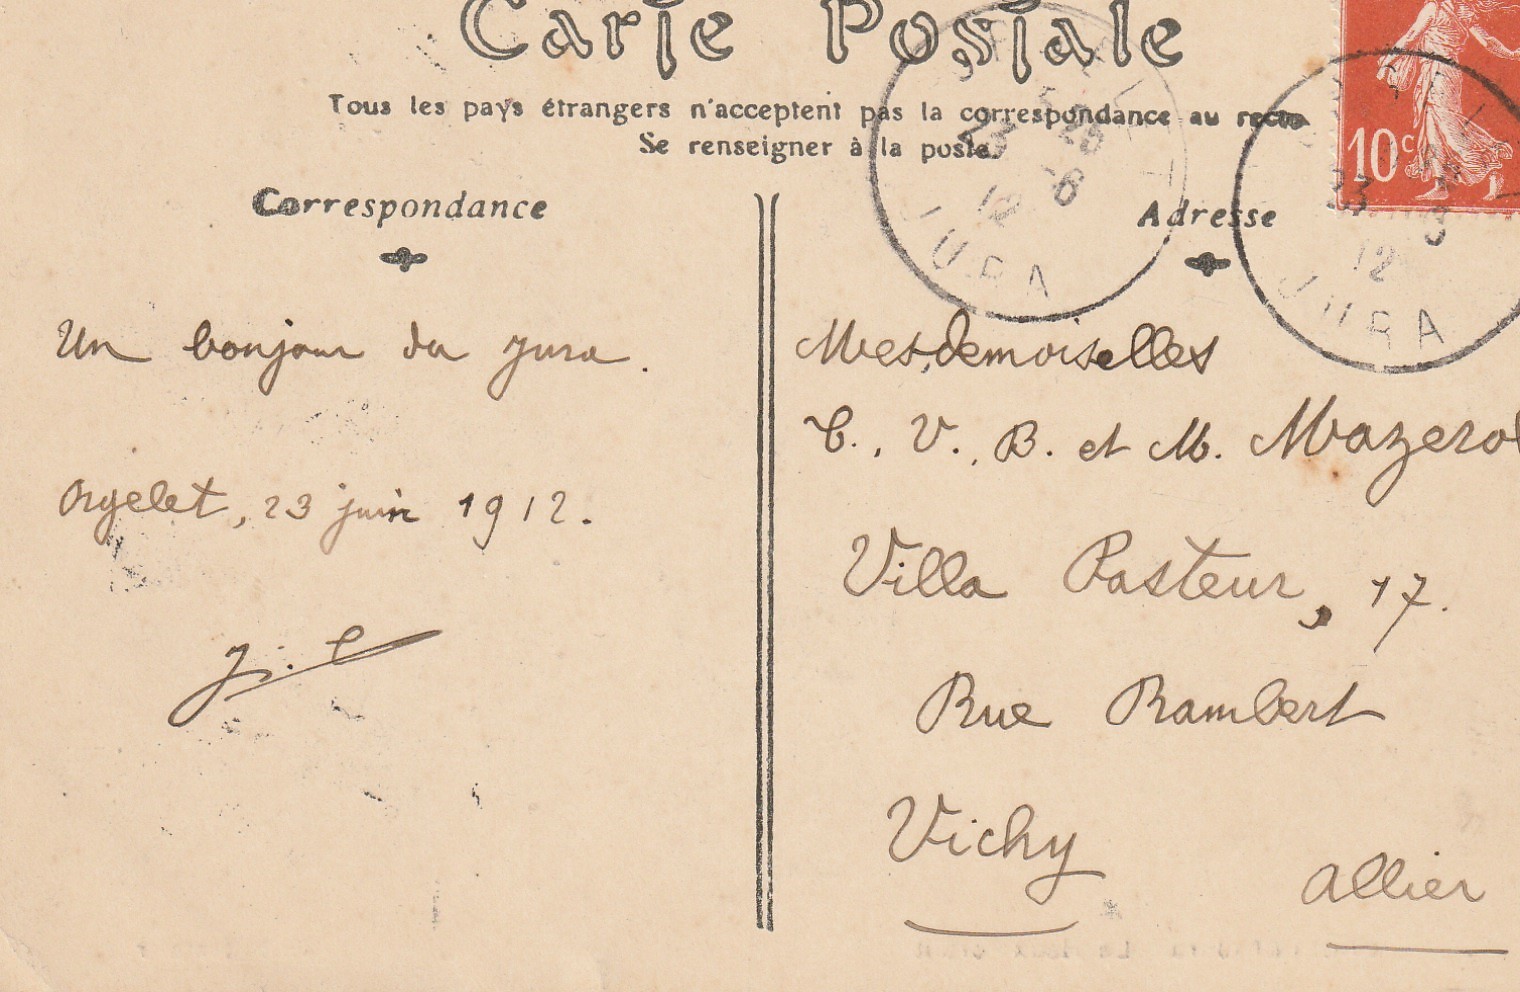 Carte Postale
Tous les pays étrangers n'acceptent pas la correspondance au recto
Se renseigner à la poste.
Correspondance
Adresse
10c
23
12
JURA
23
12
JURA
Un bonjour du Jura.
Orgelet, 23 juin 1912.
J. C
Mesdemoiselles
C., V., B. et M. Mazerol
Villa Pasteur, 17.
Rue Rambert
Vichy
Allier